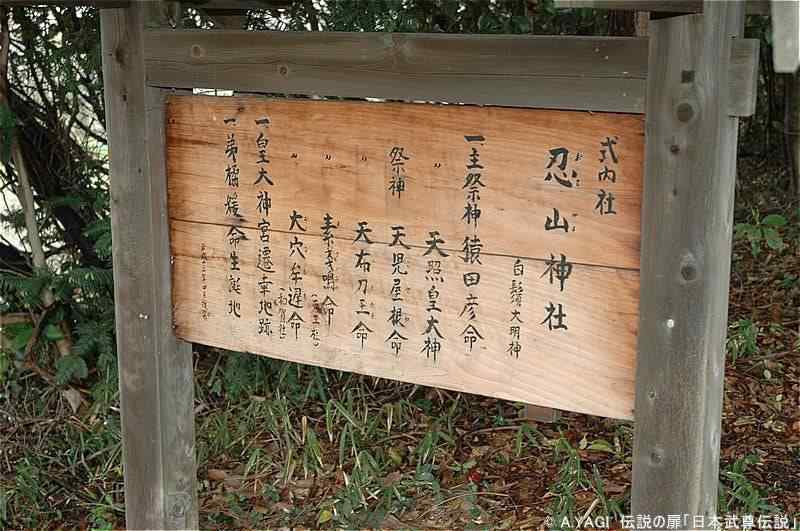 式内社
忍山神社
白鬚大明神
一主祭神 猿田彦命
〃 天照皇大神
祭神 天児屋根命
〃 天布刀玉命
〃 素戔嗚命
〃 大穴牟遅命
一皇大神宮遷幸地跡
一弟橘媛命生誕地
© A.YAGI 伝説の扉「日本武尊伝説」